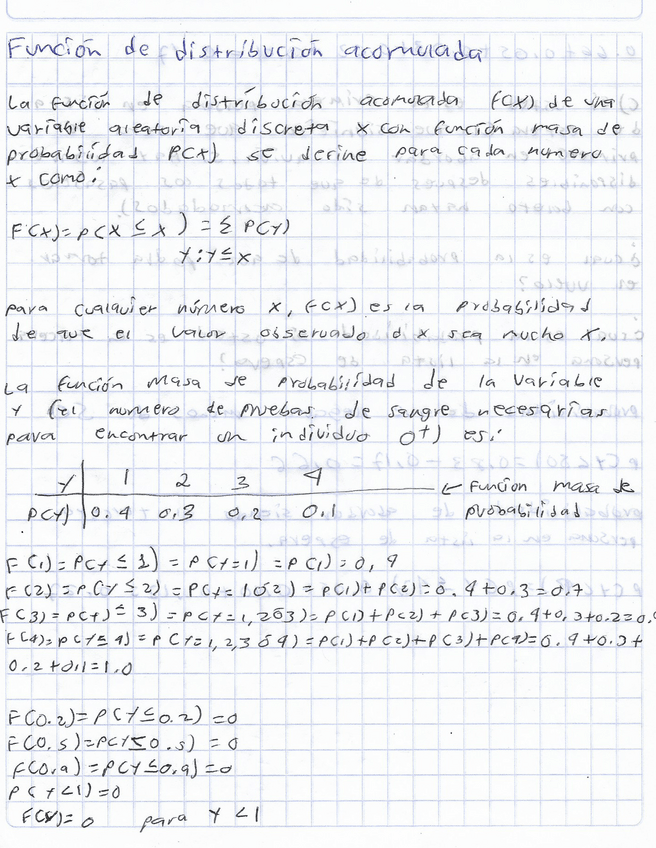 Función de distribución acomulada
La función de distribución acomulada F(X) de una
variable aleatoria discreta x con función masa de
probabilidad P(X) se derine para cada número
x como:
F(X)=P(X ≤ x) = Σ P(Y)
Y:Y≤x
para cualquier número x, F(X) es la probabilidad
de que el valor observado d x sea mucho x.
La función masa se probabilidad de la variable
Y (el numero de pruebas de sangre necesarias
para encontrar un individuo O+) es:
Y 1 2 3 4 ← Función masa de
P(Y) 0.4 0.3 0.2 0.1 probabilidad
F(1)=P(Y ≤ 1)=P(Y=1)=P(1)=0,4
F(2)=P(Y ≤ 2)=P(Y=1ó2)=P(1)+P(2)=0.4+0.3=0.7
F(3)=P(Y) ≤ 3)=P(Y=1,2ó3)=P(1)+P(2)+P(3)=0.4+0,3+0.2=0.9
F(4)=P(Y≤4)=P(Y=1,2,3 ó4)=P(1)+P(2)+P(3)+P(4)=0.4+0.3+
0.2+0.1=1.0
F(0.2)=P(Y≤0.2)=0
F(0.5)=P(Y≤0.5)=0
F(0.9)=P(Y≤0.9)=0
P(Y<1)=0
F(Y)=0 para Y<1